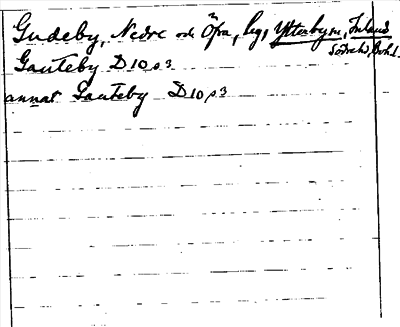 Gudeby, Nedre och Öfra, by, Ytterby sn, Inland
Södra hd, Boh.l.
Gauteby D 10 s 3
annat Gauteby D 10 s 3